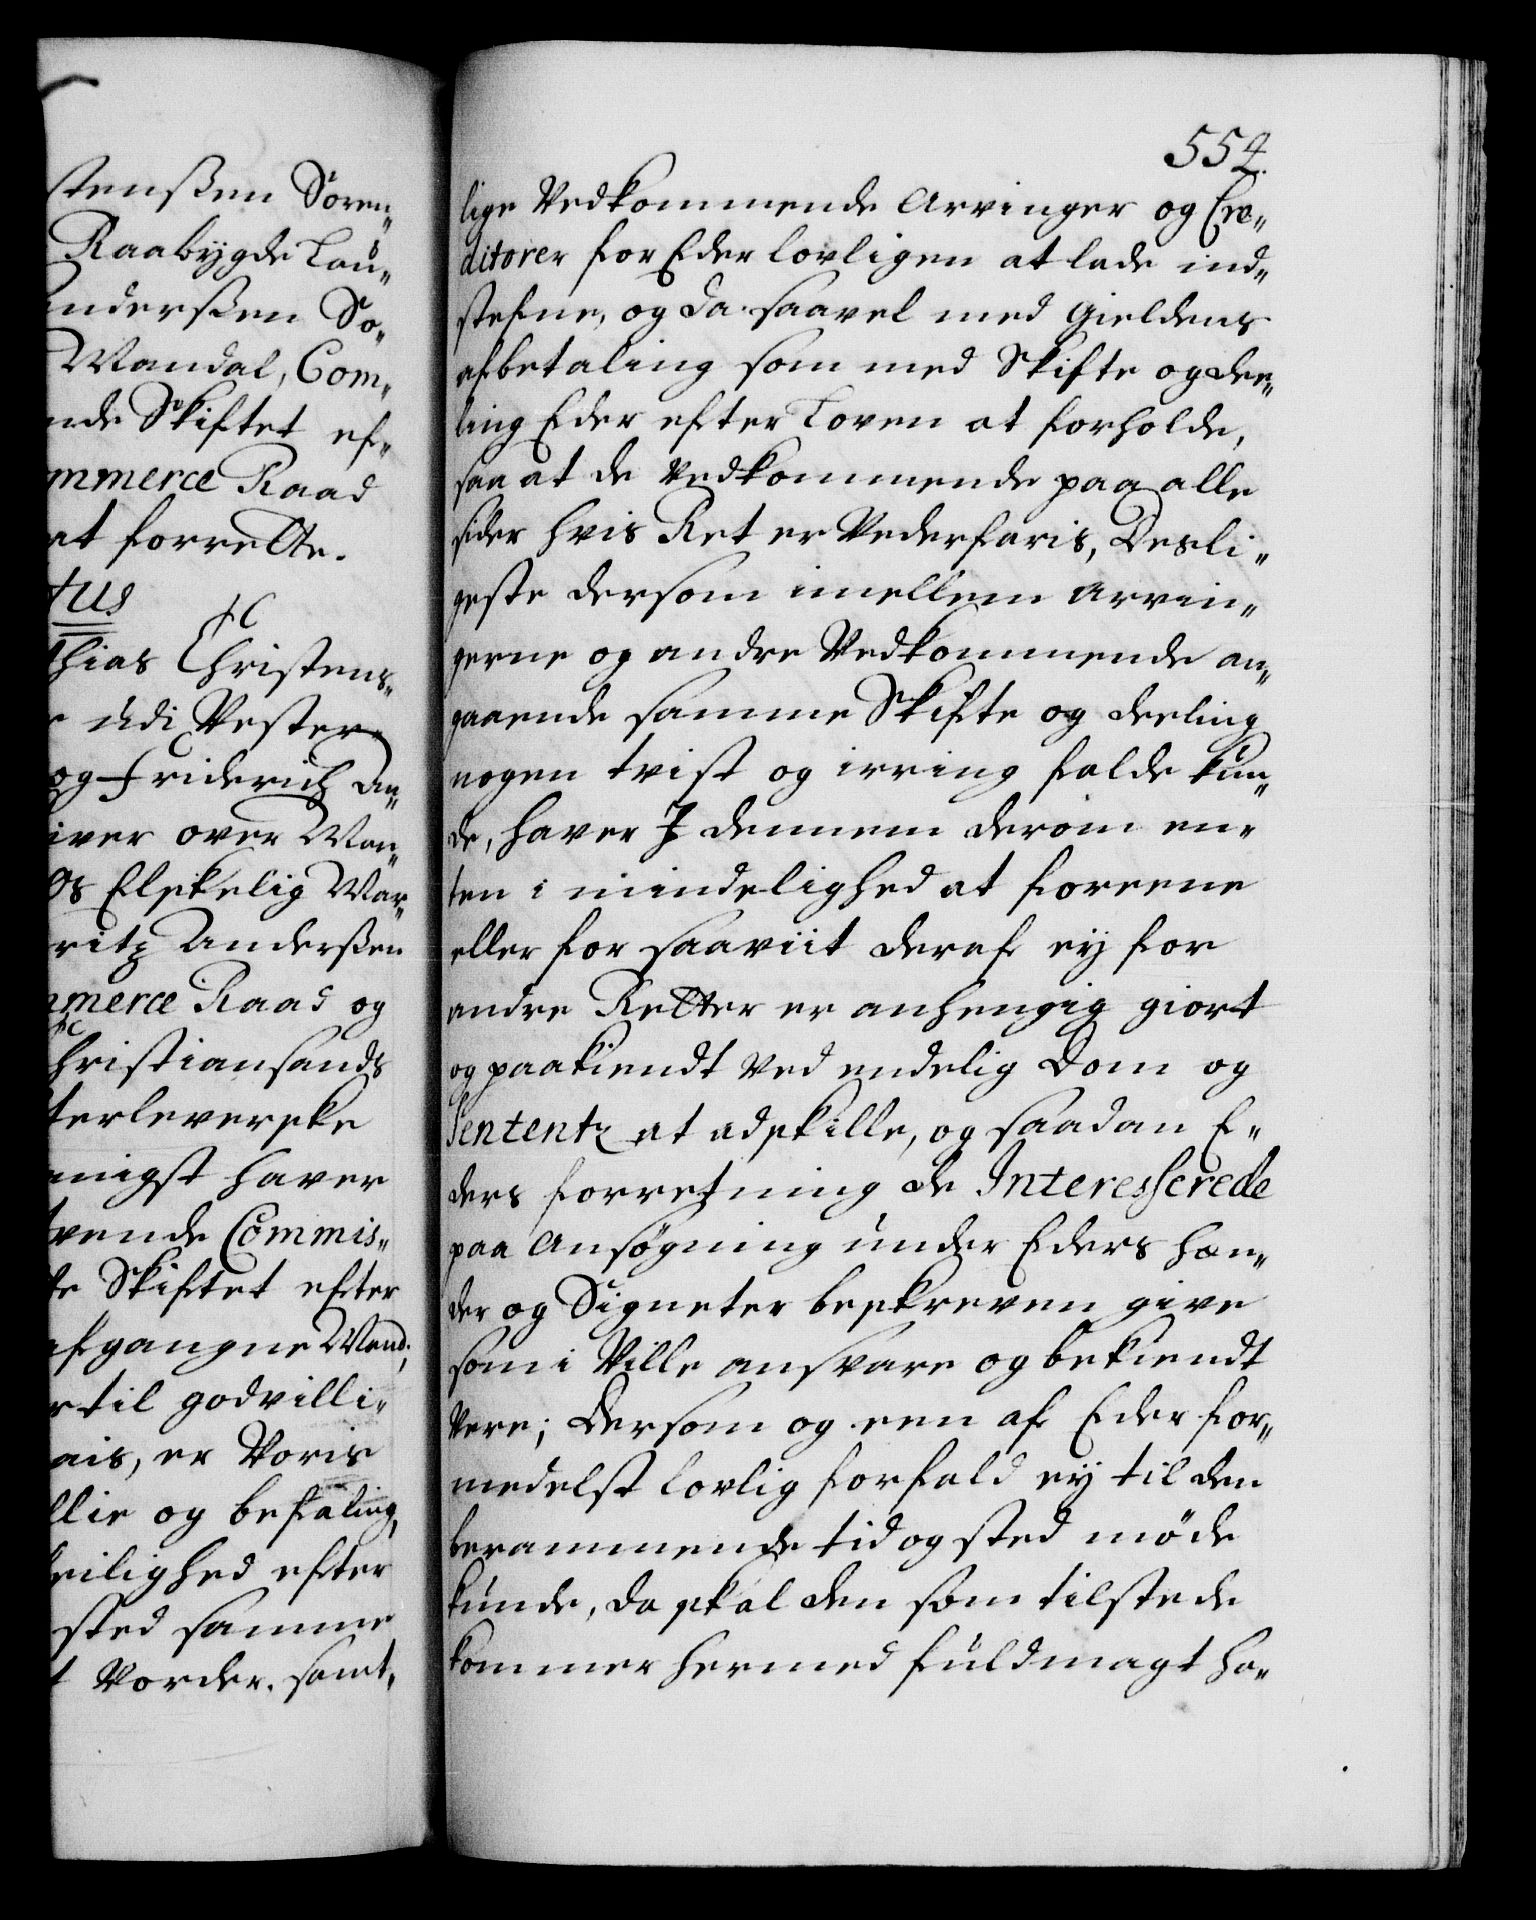 stenßen Sören„
Raabÿgde Lau„
nderßen So„
Mandal, Com„
nde Skiftet ef„
mmerce Raad
at forrette.
tus
thias Christens„
udi Vester„
og Friderich An„
iver over Man„
Os Elskelig Mar„
ritz Anderßen
mmerce Raad og
hristiansands
terleverske
nigst haver
tvende Commis„
te Skiftet efter
afgangne Mand;
rtil godvilli„
ais, er Voris
llie og befaling,
leilighed efter
sted samme
t Vorder. samt„
554.
lige Vedkommende Arvinger og Cre„
ditorer for Eder lovligen at lade ind„
stefne, og da saavel med Gieldens
afbetaling som med Skifte og dee„
ling Eder efter Loven at forholde,
saa at de Vedkommende paa alle
sider hvis Ret er Vederfaris, Desli„
geste dersom imellem Arvin„
gerne og andre Vedkommende an„
gaaende samme Skifte og deeling
nogen tvist og irring falde kun„
de, haver I dennem derom en„
ten i mindelighed at foreene
eller for saaviit deraf ej for
andre Retter er anhengig giort
og paakiendt Ved endelig Dom og
Sententz at adskille, og saadan E„
ders forretning de Interesserede
paa Ansøgning under Eders hæn„
der og Signeter beskreven give
som i Ville ansvare og bekiendt
Vere; Dersom og een af Eder for„
medelst lovlig forfald ej til den
berammende tid og sted møde
kunde, da skal den som tilstede
kommer hermed fuldmagt ha„